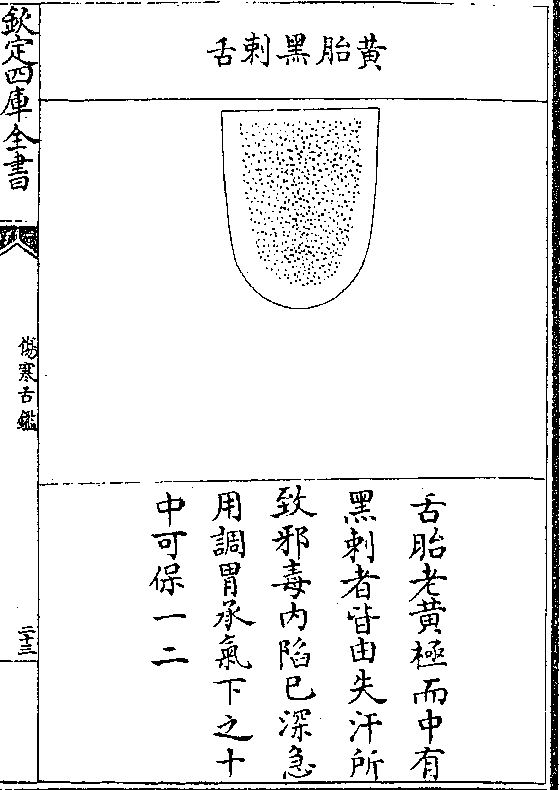 黃胎黑刺舌
舌胎老黃極而中有
黑刺者皆由失汗所
致邪毒內陷已深急
用調胃承氣下之十
中可保一二
欽定四庫全書
傷寒舌鑑
二十三